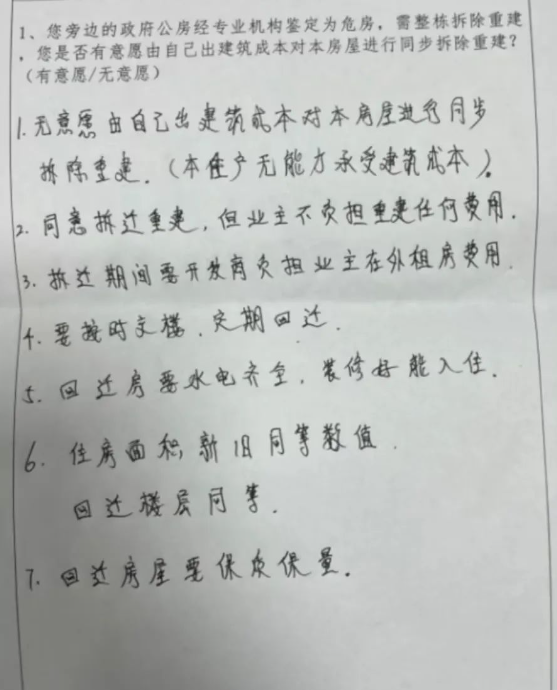 1、您旁边的政府公房经专业机构鉴定为危房，需整栋拆除重建
，您是否有意愿由自己出建筑成本对本房屋进行同步拆除重建？
（有意愿/无意愿）
1.无意愿由自己出建筑成本对本房屋进行同步
拆除重建.（本住户无能力承受建筑成本）。
2.同意拆迁重建,但业主不负担重建任何费用.
3.拆迁期间要开发商负担业主在外租房费用.
4.要按时交楼.定期回迁.
5.回迁房要水电齐全,装修好能入住.
6.住房面积,新旧同等数值.
回迁楼层同等.
7.回迁房屋要保质保量.